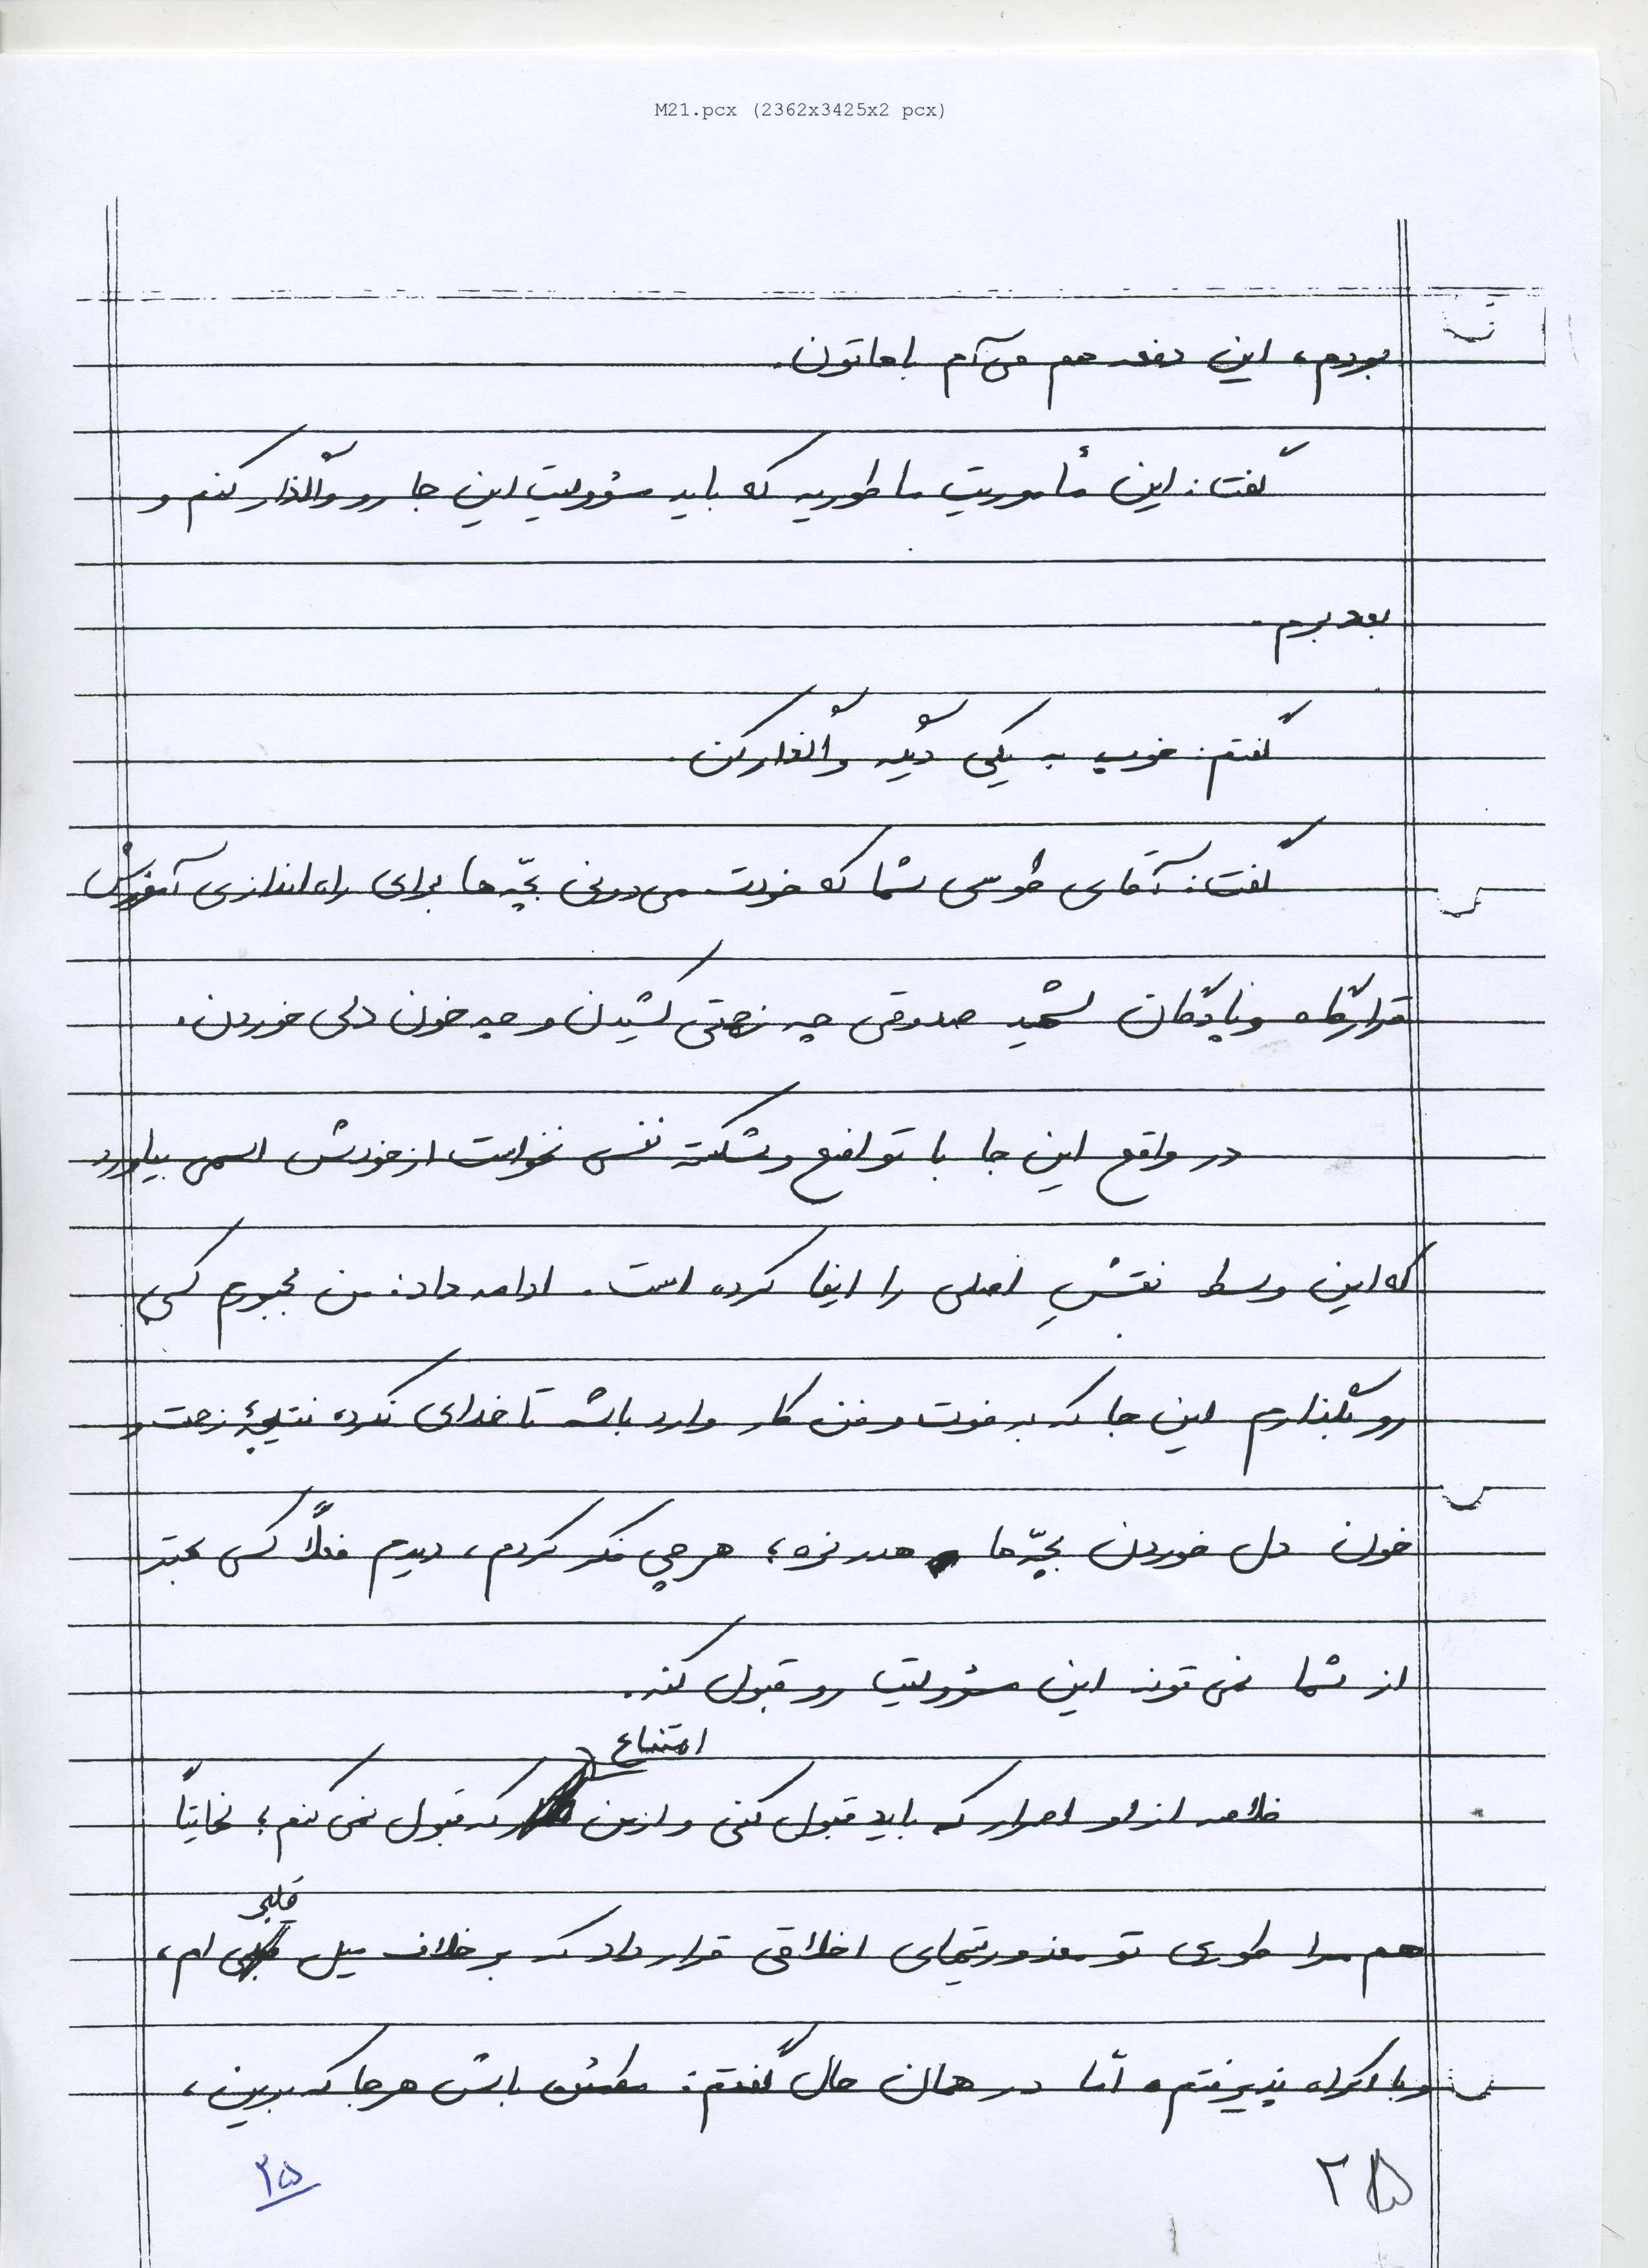 M21.pcx (2362x3425x2 pcx)
بودم، این دفعه هم می‌آم باهاتون.
گفت: این مأموریت ما طوریه که باید مسؤولیت این جا رو واگذار کنم و
بعد برم.
گفتم: خوب به یکی دیگه واگذار کن.
گفت: آقای طوسی شما که خودت می‌دونی بچّه‌ها برای راه‌اندازی آموزش
قرارگاه و پادگان شهید صدوقی چه زحمتی کشیدن و چه خون دلی خوردن.
در واقع این جا با تواضع و شکسته نفسی نخواست از خودش اسمی بیاورد
که این وسط نقشِ اصلی را ایفا کرده است. ادامه داد: من مجبورم کسی
رو بگذارم این جا که به فوت و فن کار وارد باشه تا خدای نکرده نتیجۀ زحمت و
خون دل خوردن بچّه‌ها هدر نره؛ هر چی فکر کردم، دیدم فعلاً کسی بهتر
از شما نمی‌تونه این مسؤولیت رو قبول کنه.
امتناع
خلاصه از او اصرار که باید قبول کنی و از من که قبول نمی‌کنم؛ نهایتاً
قلبی
هم مرا طوری تو معذوریتهای اخلاقی قرار داد که بر خلاف میل ام،
و با اکراه پذیرفتم. امّا در همان حال گفتم: مطمئن باش هر جا که برین،
۲۵
۲۵